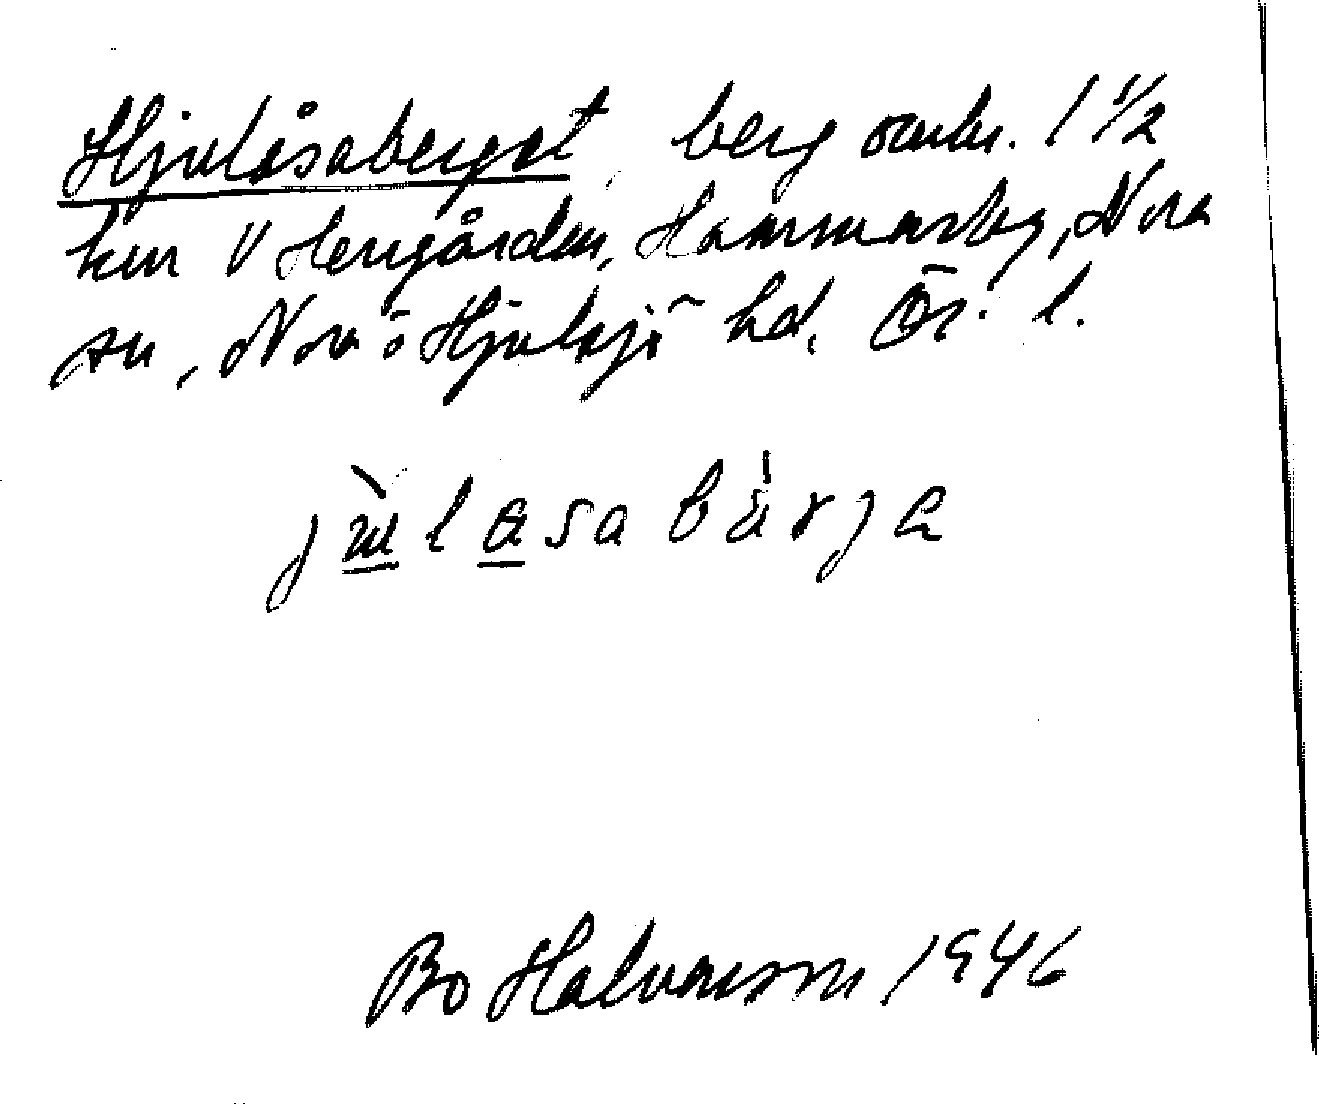 Hjulåsaberget, berg omkr. 1 1/2
km V Herrgården, Hammarby, Nora
sn, Nora o Hjulsjö hd, Ör. l.
jùlasa bä́rje
Bo Halvarsson 1946